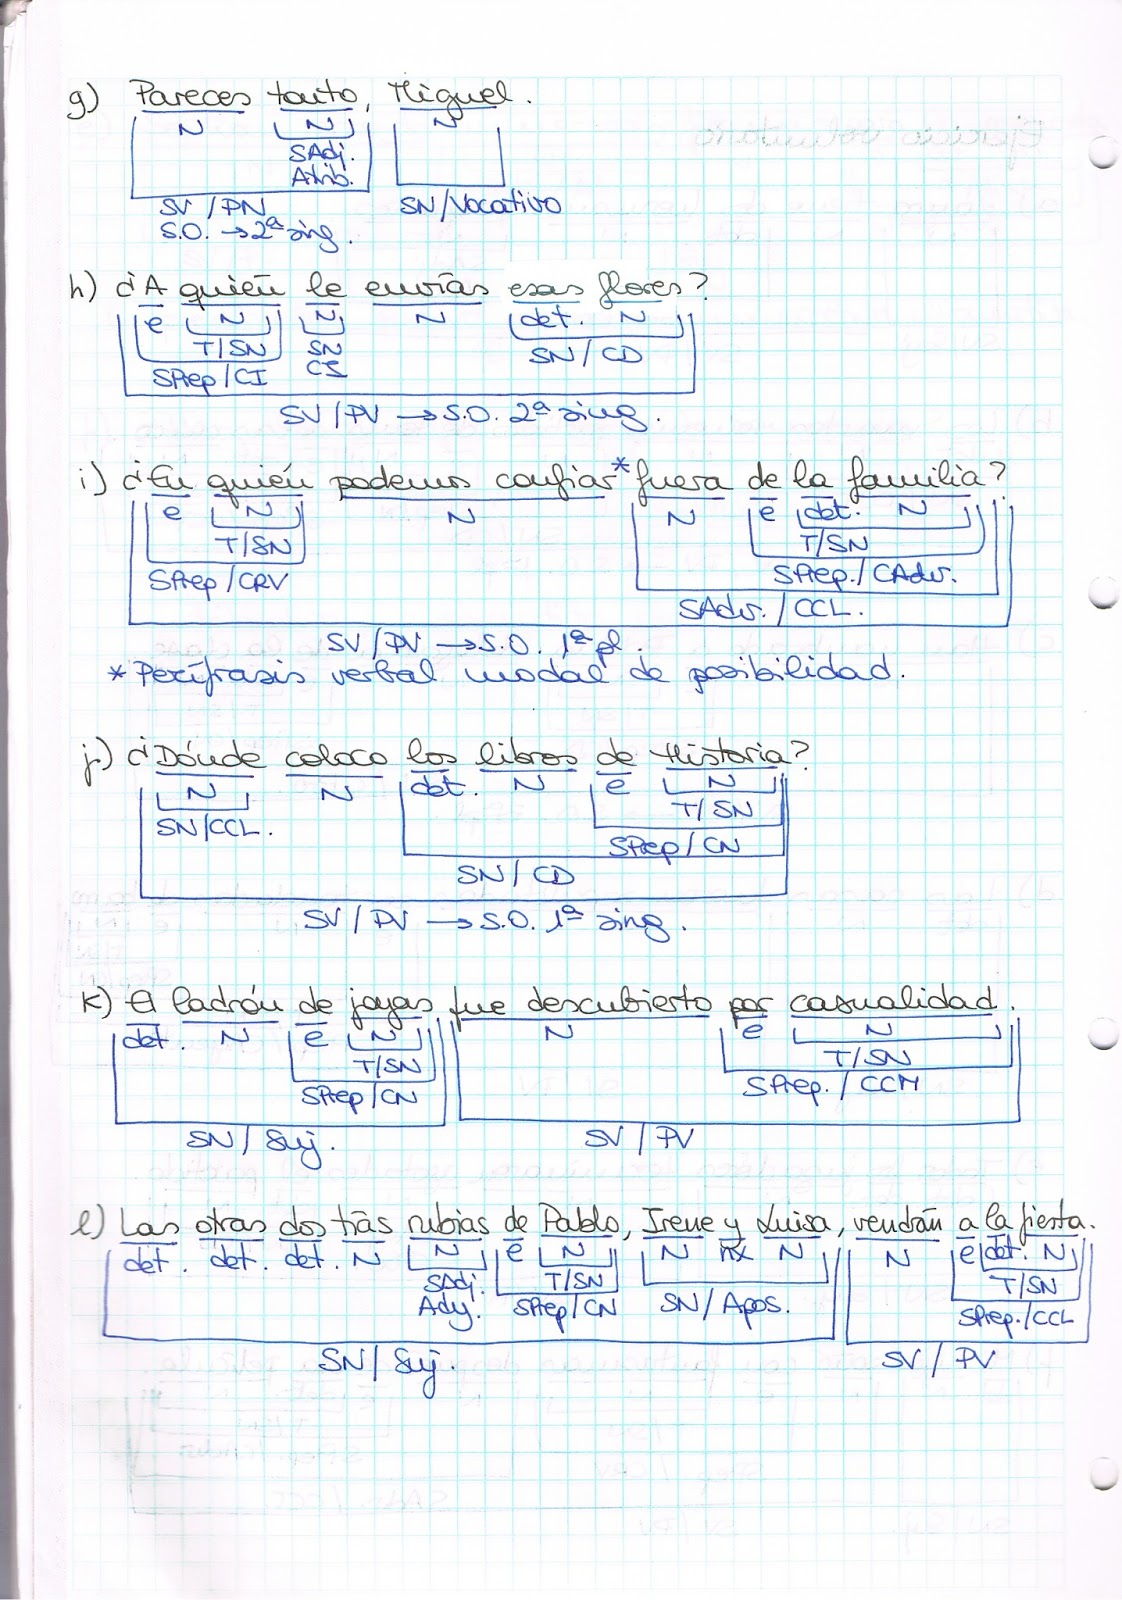 g) Pareces tonto, Miguel.
N N N
SAdj.
Atrib.
SV / PN SN/Vocativo
S.O. → 2ª sing.
h) ¿A quién le envías esas flores?
e N N N det. N
T/SN SN SN / CD
SPrep / CI CI
SV / PV → S.O. 2ª sing.
i) ¿En quién podemos confiar* fuera de la familia?
e N N N e det. N
T/SN T/SN
SPrep / CRV SPrep. / CAdv.
SAdv. / CCL.
SV / PV → S.O. 1ª pl.
* Perífrasis verbal modal de posibilidad.
j) ¿Dónde coloco los libros de Historia?
N N det. N e N
SN/CCL. T/SN
SPrep / CN
SN / CD
SV / PV → S.O. 1ª sing.
k) El ladrón de joyas fue descubierto por casualidad.
det. N e N N e N
T/SN T/SN
SPrep / CN SPrep. / CCM
SN / Suj. SV / PV
l) Las otras dos tías rubias de Pablo, Irene y Luisa, vendrán a la fiesta.
det. det. det. N N e N N nx N N e det. N
SAdj. T/SN T/SN
Ady. SPrep / CN SN / Apos. SPrep. / CCL
SN / Suj. SV / PV